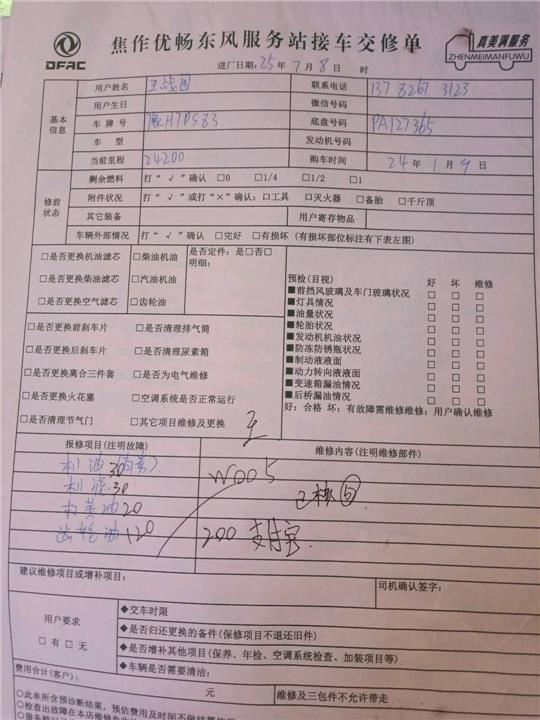 DFAC
焦作优畅东风服务站接车交修单
真美满服务
ZHENMEIMANFUWU
进厂日期:25年7月8日 时
基本信息
用户姓名 王战国 联系电话 137 8267 3123
用户生日 微信号码
车牌号 豫H7PS83 底盘号码 PA127365
车型 发动机号码
当前里程 24200 购车时间 24年1月9日
修前状态
剩余燃料 打“√”确认 □0 □1/4 □1/2 □1
附件状况 打“√”或打“×”确认:□工具 □灭火器 □备胎 □千斤顶
其它装备 用户寄存物品
车辆外部情况 打“√”确认 □完好 □有损坏(有损坏部位标注有下表左图)
□是否更换机油滤芯 □柴油机油 是否定件:是□否□
明细:
□是否更换柴油滤芯 □汽油机油
□是否更换空气滤芯 □齿轮油
预检(目视) 好 坏 维修
■前挡风玻璃及车门玻璃状况 □ □ □
■灯具情况 □ □ □
■油量状况 □ □ □
■轮胎状况 □ □ □
■发动机机油状况 □ □ □
■防冻防锈瓶状况 □ □ □
■制动液液面 □ □ □
■动力转向液液面 □ □ □
■变速箱漏油情况 □ □ □
■后桥漏油情况 □ □ □
好:合格 坏:有故障需维修维修:用户确认维修
□是否更换前刹车片 □是否清理排气筒
□是否更换后刹车片 □是否清理尿素箱
□是否更换离合三件套 □是否为电气维修
□是否更换火花塞 □空调系统是否正常运行
□是否清理节气门 □其它项目维修及更换
王
报修项目(注明故障) 维修内容(注明维修部件)
机油30
机滤30
W005
已核⑤
黄油20
齿轮油120
200 支付宝
建议维修项目或增补项目:
司机确认签字:
用户要求
□有 □无
◆交车时限
◆是否归还更换的备件(保修项目不退还旧件)
◆是否增补其他项目(保养、年检、空调系统检查、加装项目等)
◆车辆是否需要清洁:
费用合计(客户): 元 维修及三包件不允许带走
○此单所含预诊断结果,预估费用及时间不做结算依据